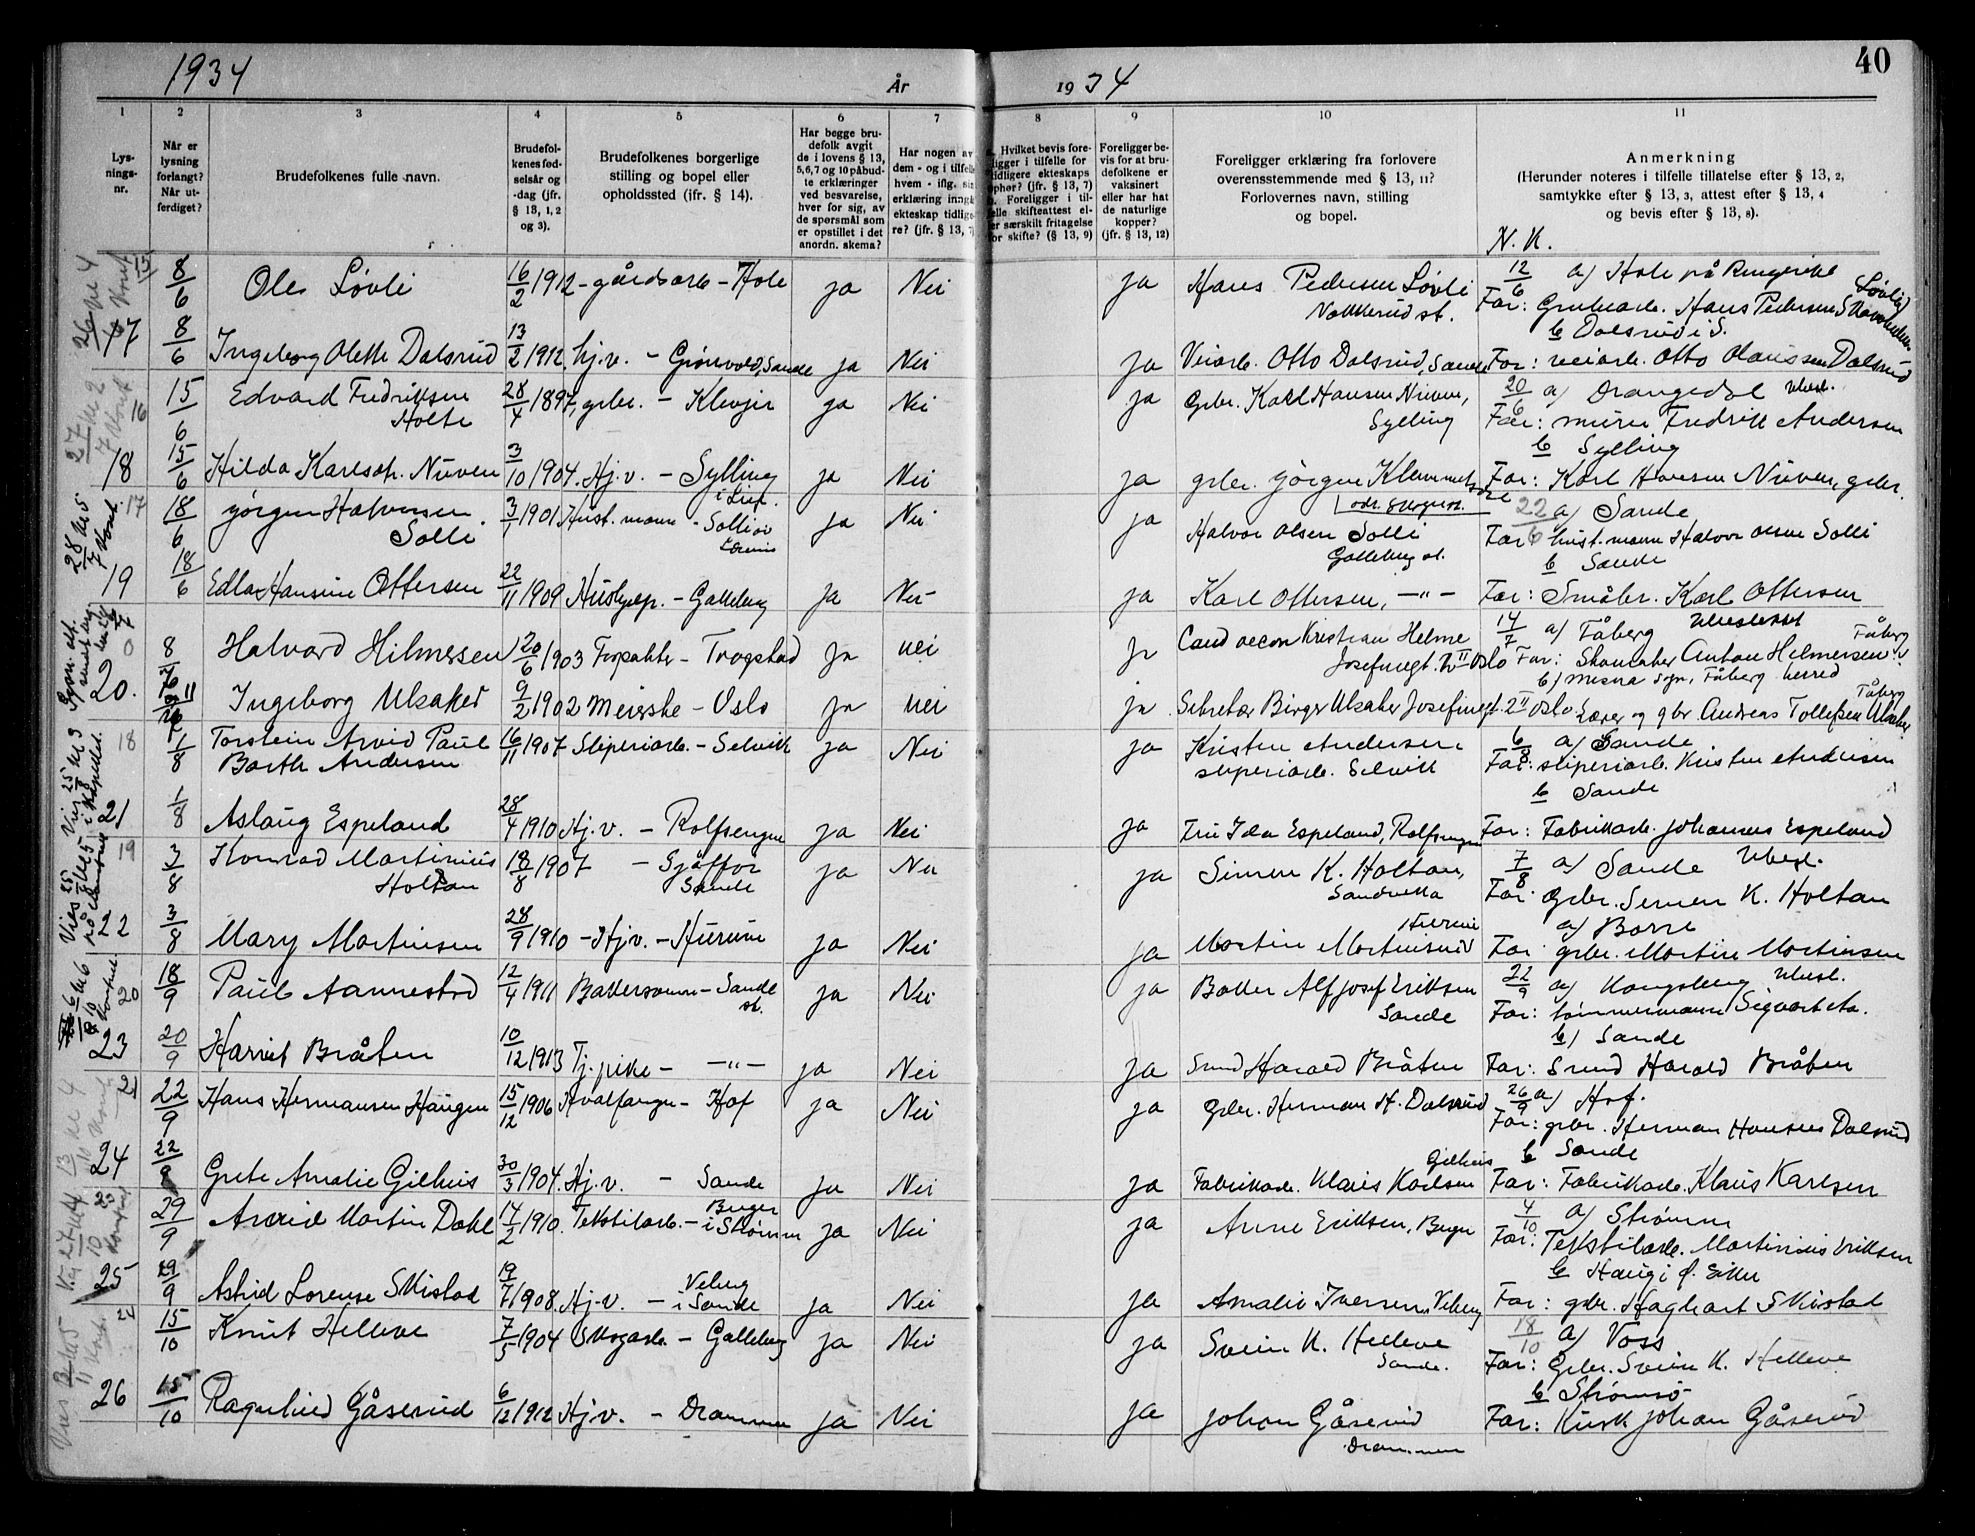 1934
År
1934
40
1
2
3
4
5
6
7
8
9
10
11
Lysningsnr.
Når er lysning forlangt? Når utferdiget?
Brudefolkenes fulle navn.
Brudefolkenes fødselsår og -dag (jfr. § 13, 1, 2 og 3).
Brudefolkenes borgerlige stilling og bopel eller opholdssted (ifr. § 14).
Har begge brudefolk avgit de i lovens § 13, 5, 6, 7 og 10 påbudte erklæringer ved besvarelse, hver for sig, av de spørsmål som er opstillet i det anordn. skema?
Har nogen av dem - og i tilfelle hvem - iflg.
erklæring
ekteskap tidligere? (jfr. § 13, 7)
Hvilket bevis foreligger i tilfelle for tidligere ekteskaps ophør? (jfr. § 13, 7)
Foreligger i tilfelle skifteattest eller særskilt fritagelse for skifte? (§ 13, 9)
Foreligger bevis for at brudefolkene er vaksinert eller har hat de naturlige kopper? (jfr. § 13, 12)
Foreligger erklæring fra forlovere overensstemmende med § 13, 11? Forlovernes navn, stilling og bopel.
Anmerkning
(Herunder noteres i tilfelle tillatelse efter § 13, 2, samtykke efter § 13, 3, attest efter § 13, 4 og bevis efter § 13, 8).
N. K.
15 8/6 Ole Løvli 16/2 1912 - gårdsarb - Hole ja Nei ja Hans Pedersen Løvli Nakkerud st. 12/6 a) Hole på Ringerike
Far: Grubearb. Hans Pedersen
b Dalsrud i S.
17 8/6 Ingeborg Olette Dalsrud 13/2 1912 hj.v. - Grønvold, Sande ja Nei ja Veiarb. Otto Dalsrud, Sande Far: veiarb. Otto Hanssen Dalsrud
16 15/6 Edvard Fredriksen Holte 28/4 1897, grbr. - Klevjer ja Nei ja Grbr. Karl Hansen Nuven, Sylling 20/6 a) Drangedal Ubesl.
Far: murer Fredrik Andersen
b Sylling
18 15/6 Hilda Karlsdtr. Nuven 3/10 1904. Hj.v. - Sylling i Lier. ja Nei ja grbr. Jørgen Klemmetsen Far: Karl Hansen Nuven, grbr.
17 18/6 Jørgen Halvorsen Solli 3/1 1901 Hust.mann - Solli ja Nei ja Halvor Olsen Solli Galleberg st. 22/6 a) Sande
Far: hust.mann Halvor Olsen Solli
b Sande
19 18/6 Edla Hansine Ottersen 22/11 1909 Hushjelp. - Galleberg ja Nei ja Karl Ottersen, -"- Far: Småbr. Karl Ottersen
8/7 Halvard Hilmersen 20/6 1903 Forpakter - Trøgstad ja nei ja Cand oecon Kristian Helme Josefinegt. Oslo 14/7 a) Fåberg Ubeslektet
Far: Skomaker Anton Helmersen Fåberg
b) Mesna sogn, Fåberg herred
20. Ingeborg Ulsaker 9/2 1902 Meierske - Oslo ja nei ja Sekretær Birger Ulsaker Josefinegt. 2 II Oslo. Lærer og gbr. Andreas Tollefsen Ulsaker Fåberg
18 1/8 Torstein Arvid Paul Barth Andersen 16/11 1907 Sliperiarb. - Selvik ja Nei ja Kristen Andersen sliperiarb. Selvik 6/8 a) Sande
Far: sliperiarb. Kristen Andersen
b Sande
21 1/8 Aslaug Espeland 28/4 1910 Hj.v. - Rolfsengen ja Nei ja Fru Ida Espeland, Rolfsengen Far: Fabrikkarb. Johannes Espeland
19 3/8 Konrad Martinius Holtan 18/8 1907 - Sjåffør Sande ja Nei ja Simen K. Holtan, Sandvikka 7/8 a) Sande Ubesl.
Far: Grbr. Simen K. Holtan
22 3/8 Mary Martinsen 28/9 1910 - Hj.v. - Hurum ja Nei ja Martin Martinsen Hurum a) Borre
Far grbr. Martin Martinsen
20 18/9 Paul Aannestad 12/4 1911 Bakersvenn - Sande st. ja Nei ja Baker Alf Josef Eriksen Sande 22/9 a) Kongsberg Ubesl.
Far: tømmermann Sigvart Aa.
b) Sande
23 20/9 Harriet Bråten 10/12 1913 Tj.pike - -"- ja Nei ja Smed Harald Bråten Far: Smed Harald Bråten
21 22/9 Hans Hermansen Haugen 15/12 1906 Hvalfanger - Hof ja Nei ja Grbr. Herman H. Dalsrud 26/9 a) Hof.
Far: grbr. Herman Hansen Dalsrud
b Sande
24 22/9 Grete Amalie Gilhus 30/3 1904. Hj.v. - Sande ja Nei ja Fabrikkarb. Klaus Karlsen Gilhus Far: Fabrikkarb. Klaus Karlsen
29/9 Arvid Martin Dahl 14/2 1910. Tekstilarb. - Berger i Strømm ja Nei ja Anne Eriksen, Berger 4/10 a) Strømm
Far: Tekstilarb. Martinius Eriksen
b Haug i Ø. Eiker
25 29/9 Astrid Lorense Skistad 19/7 1908. Hj.v. - Veberg i Sande ja Nei ja Amalie Iversen, Veberg Far: gbr. Hagbart Skistad
24 15/10 Knut Helleve 7/5 1904 Skogarb. - Galleberg ja Nei ja Svein K. Helleve Sande. 18/10 a) Voss
Far: Grbr. Svein K. Helleve
b Strømsø
26 15/10 Ragnhild Gåserud 6/12 1912 Hj.v. - Drammen ja Nei ja Johan Gåserud Drammen Far: Kusk Johan Gåserud